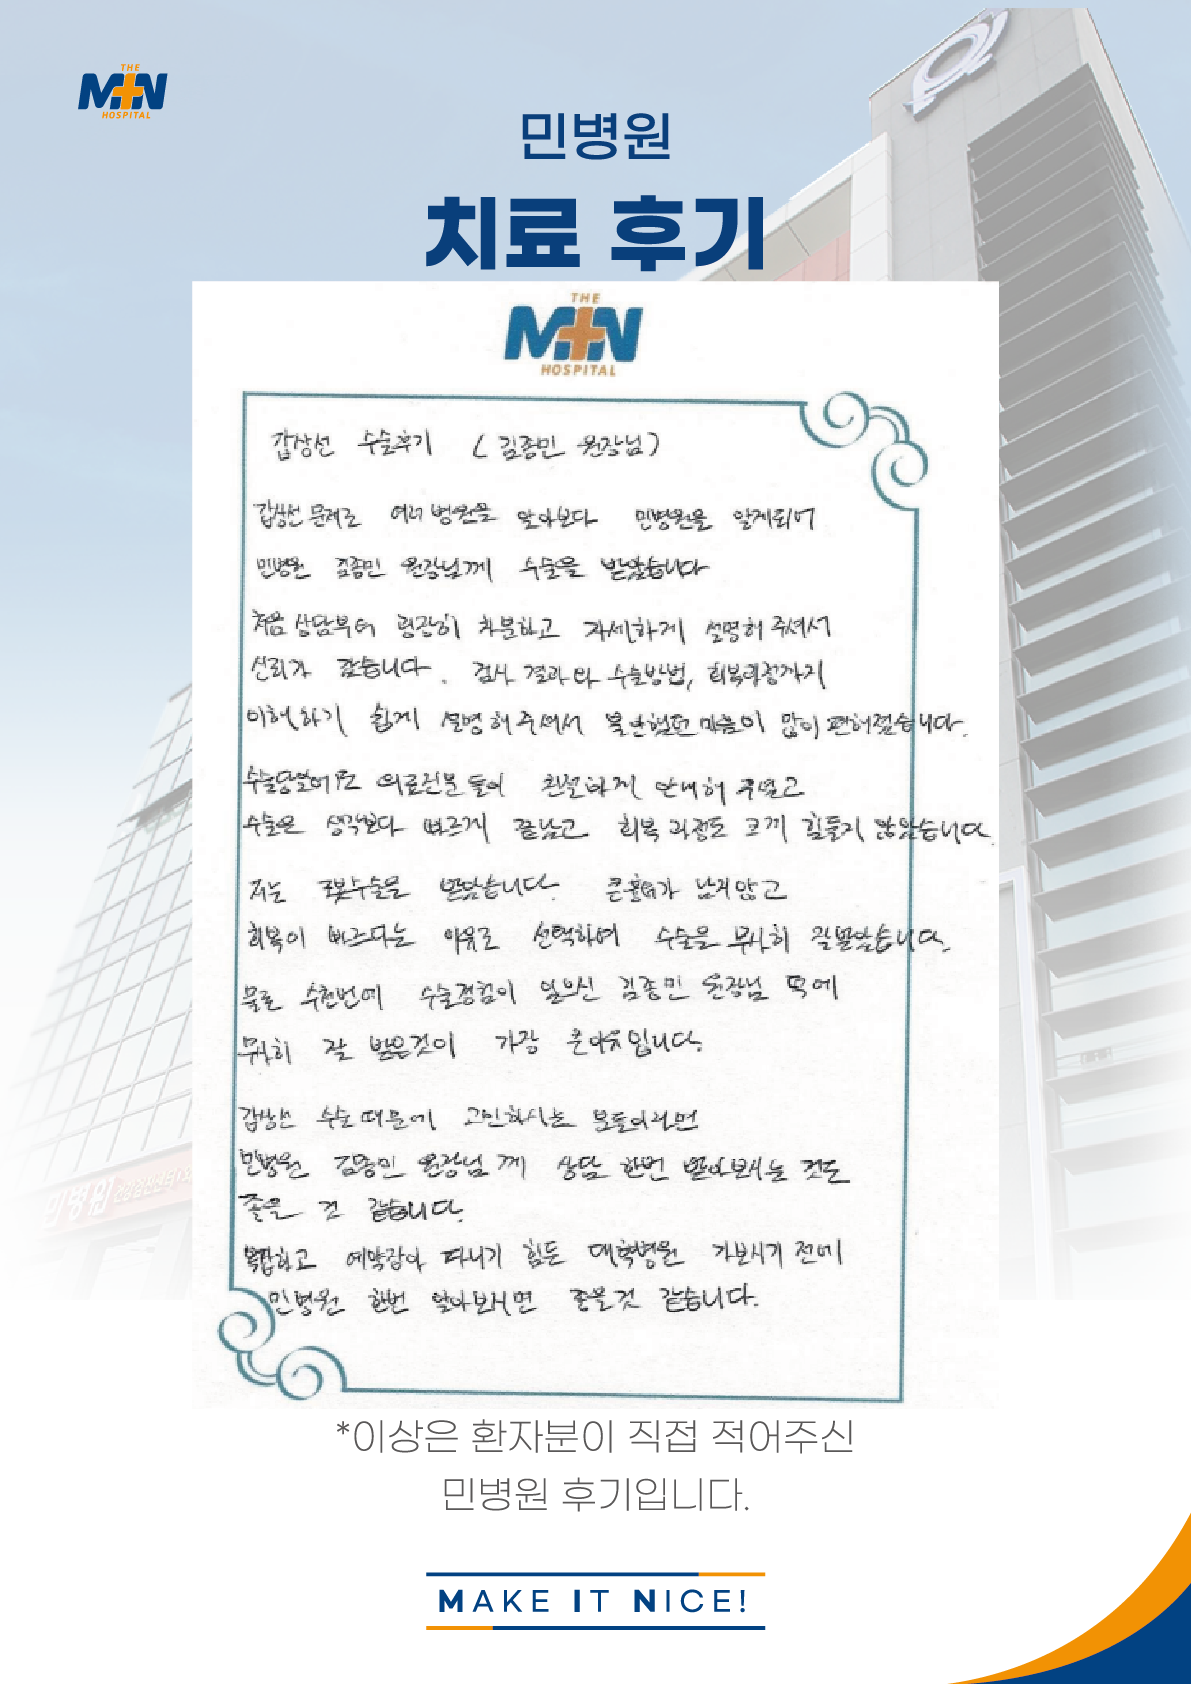 THE
MIN
HOSPITAL
민병원
치료 후기
THE
MIN
HOSPITAL
갑상선 수술후기 (김종민 원장님)
갑상선 문제로 여러 병원을 알아보다 민병원을 알게되어
민병원 김종민 원장님께 수술을 받았습니다
처음 상담부터 굉장히 차분하고 자세하게 설명해 주셔서
신뢰가 갔습니다. 검사 결과와 수술방법, 회복과정까지
이해하기 쉽게 설명해주셔서 불안했던 마음이 많이 편해졌습니다.
수술당일에도 의료진분들이 친절하게 안내해 주셨고
수술은 생각보다 빠르게 끝났고 회복 과정도 크게 힘들지 않았습니다
저는 로봇수술을 받았습니다. 큰흉터가 남지않고
회복이 빠르다는 이유로 선택하여 수술을 무사히 잘받았습니다.
물론 수천번에 수술경험이 있으신 김종민 원장님 덕에
무사히 잘 받은것이 가장 큰이유입니다.
갑상선 수술 때문에 고민하시는 분들이라면
민병원 김종민 원장님께 상담 한번 받아보시는 것도
좋을 것 같습니다.
복잡하고 예약잡아 다니기 힘든 대학병원 가보시기 전에
민병원 한번 알아보시면 좋을것 같습니다.
*이상은 환자분이 직접 적어주신
민병원 후기입니다.
MAKE IT NICE!